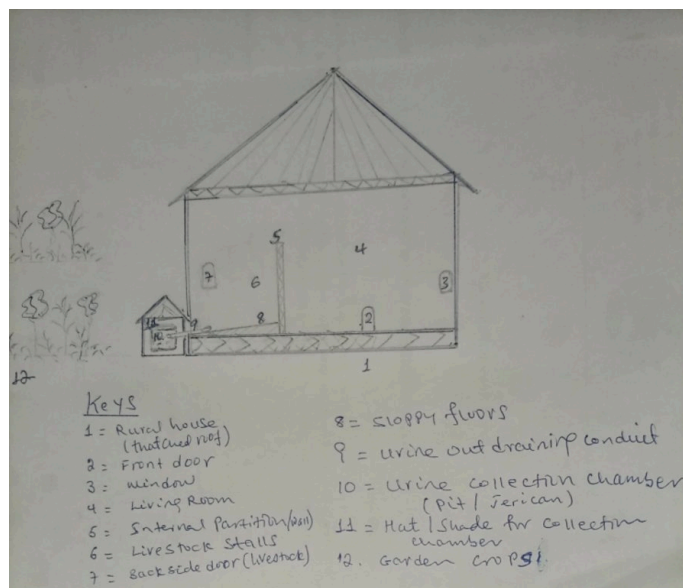 5
4
7
6
3
11
9
8
2
10
12
1
Keys
1 = Rural house
(thatched roof)
2 = Front door
3 = window
4 = Living Room
5 = Internal Partition/wall)
6 = Livestock stalls
7 = Back side door (livestock)
8 = Sloppy floors
9 = urine out draining conduit
10 = Urine collection chamber
(Pit / Jerican)
11 = Hat / Shade for collection
chamber
12. Garden crops